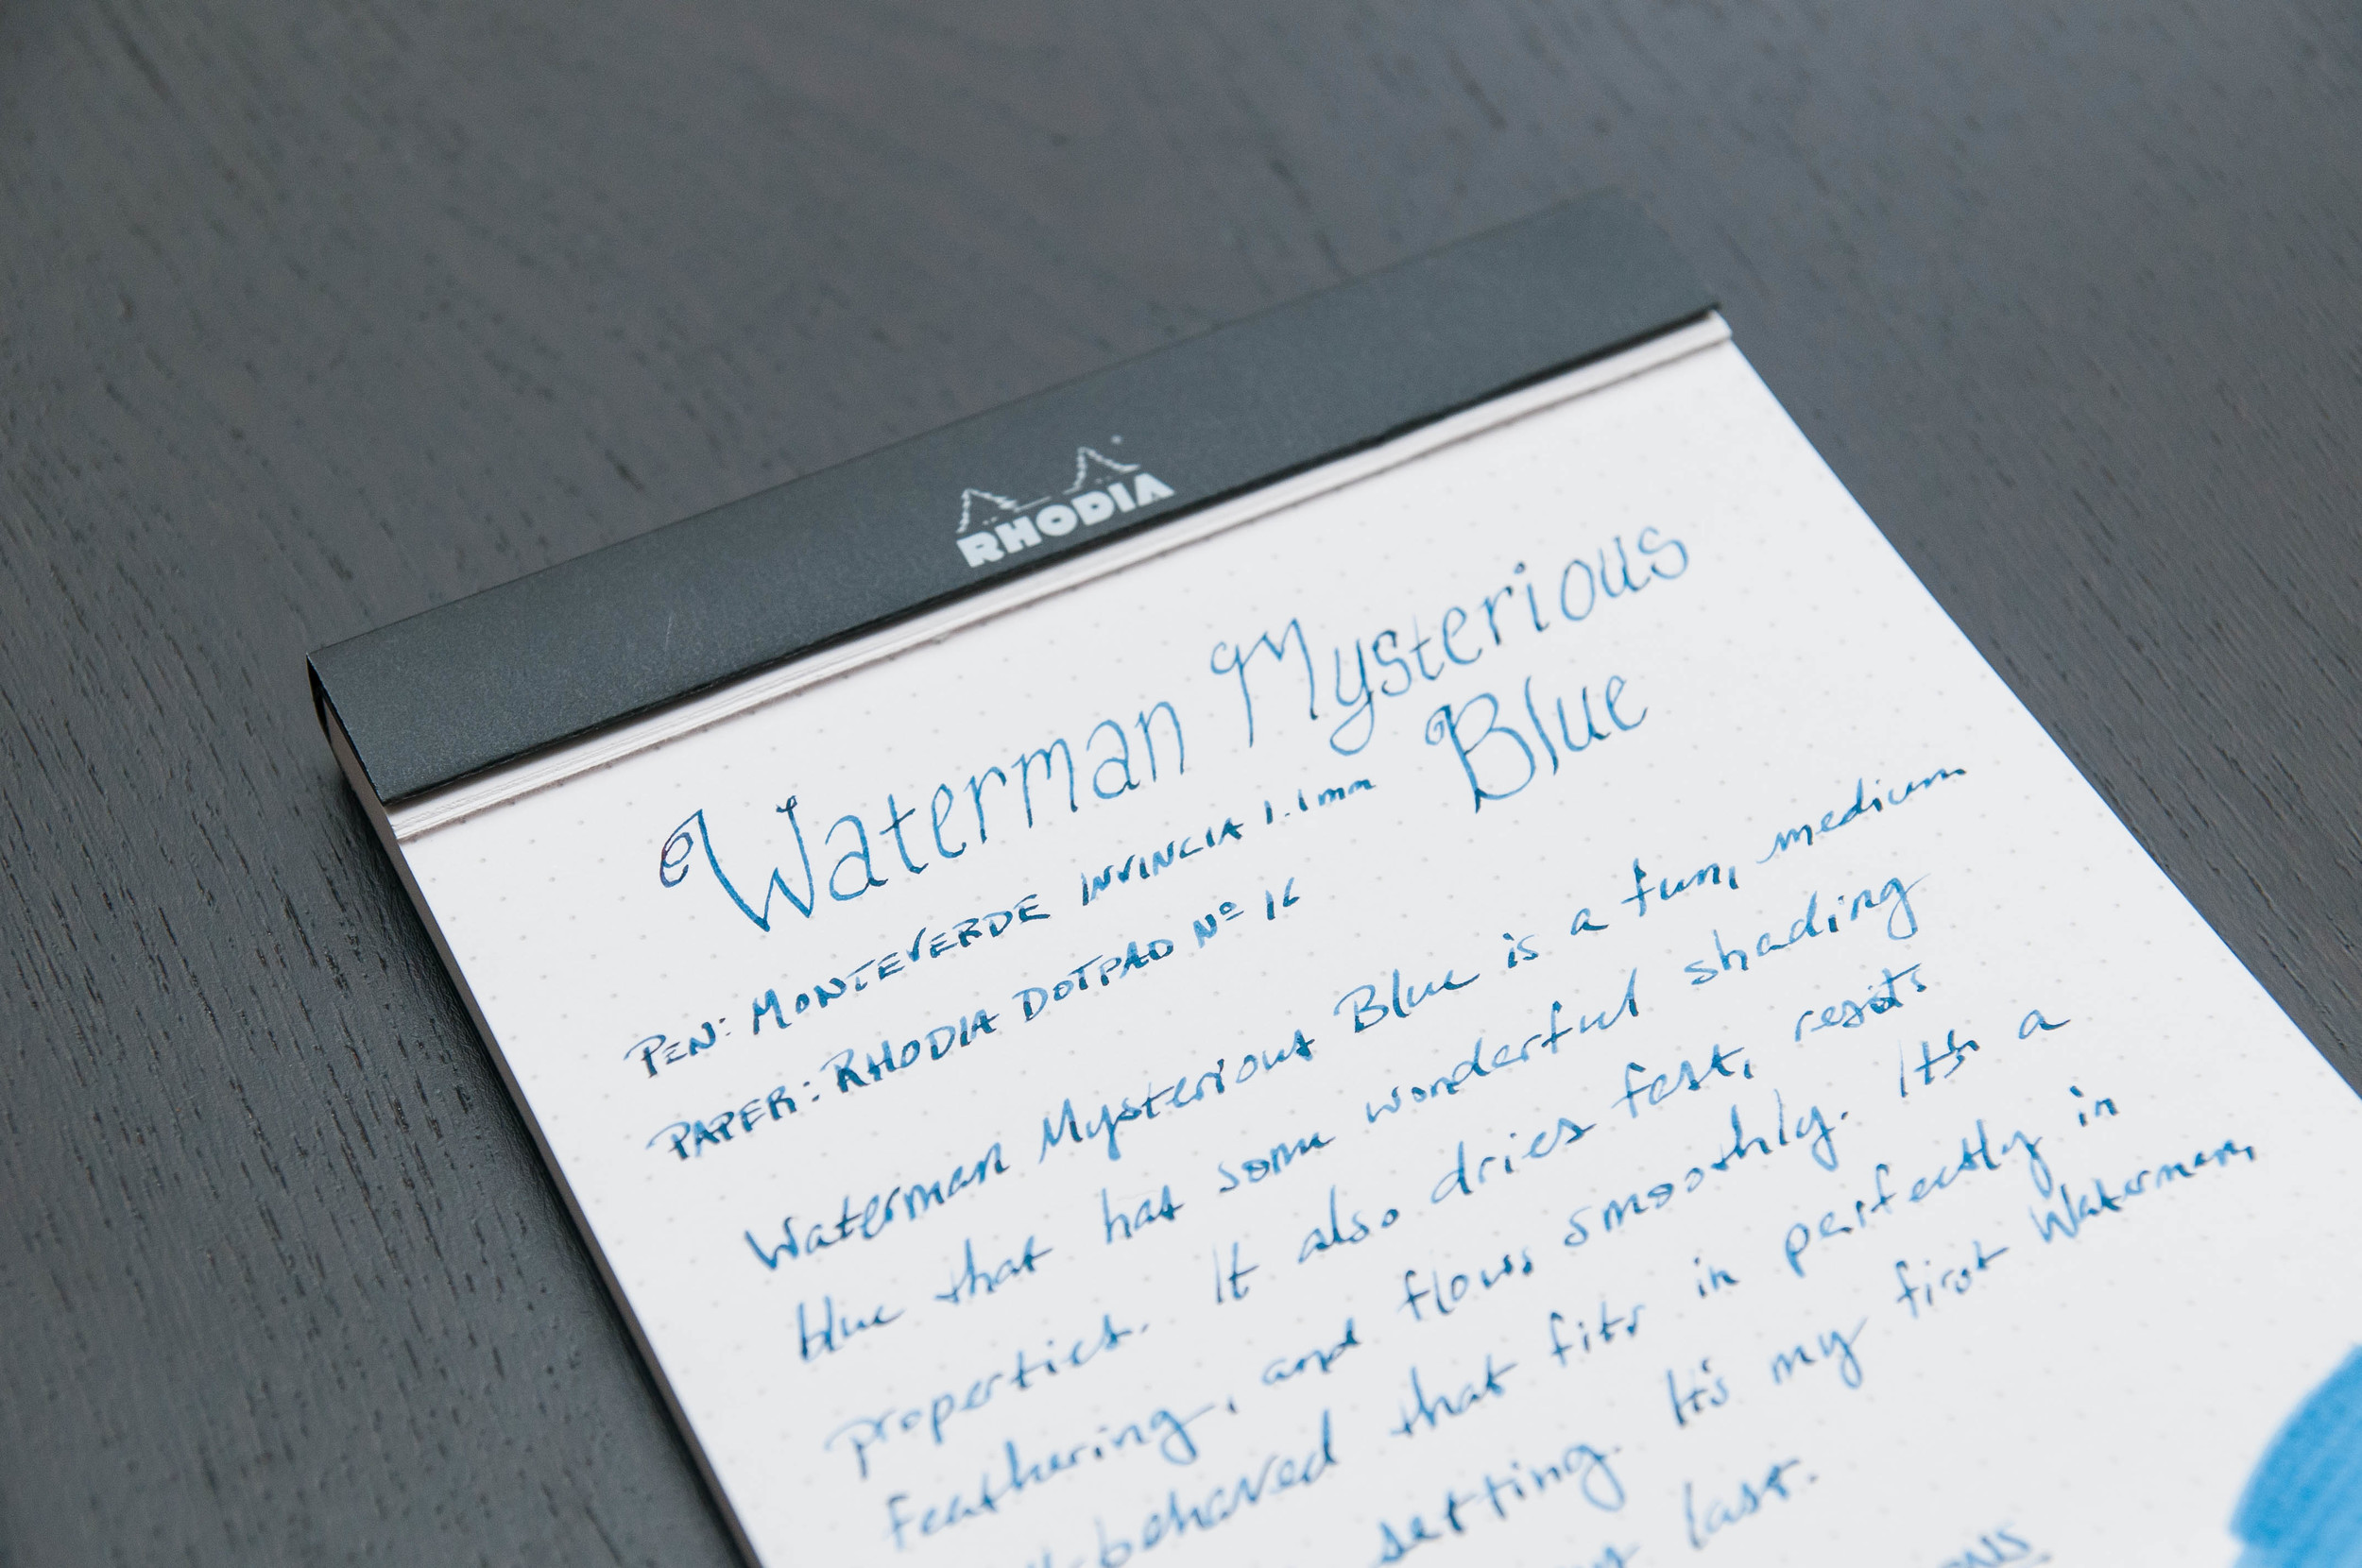 RHODIA
Waterman Mysterious
Blue
PEN: MONTEVERDE INVINCIA 1.1mm
PAPER: RHODIA DOTPAD Nº 16
Waterman Mysterious Blue is a fun, medium
blue that has some wonderful shading
properties. It also dries fast, resists
feathering, and flows smoothly. It's a
behaved that fits in perfectly in
setting. It's my first Waterman,
last.